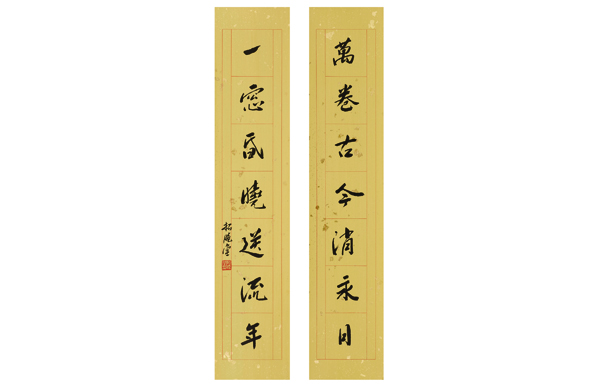 萬卷古今消永日
一窓昏曉送流年